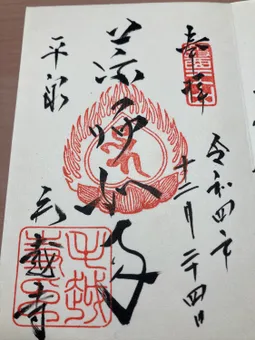 奉拝
令和四年
十二月二十四日
薬師如来
平泉
毛越寺